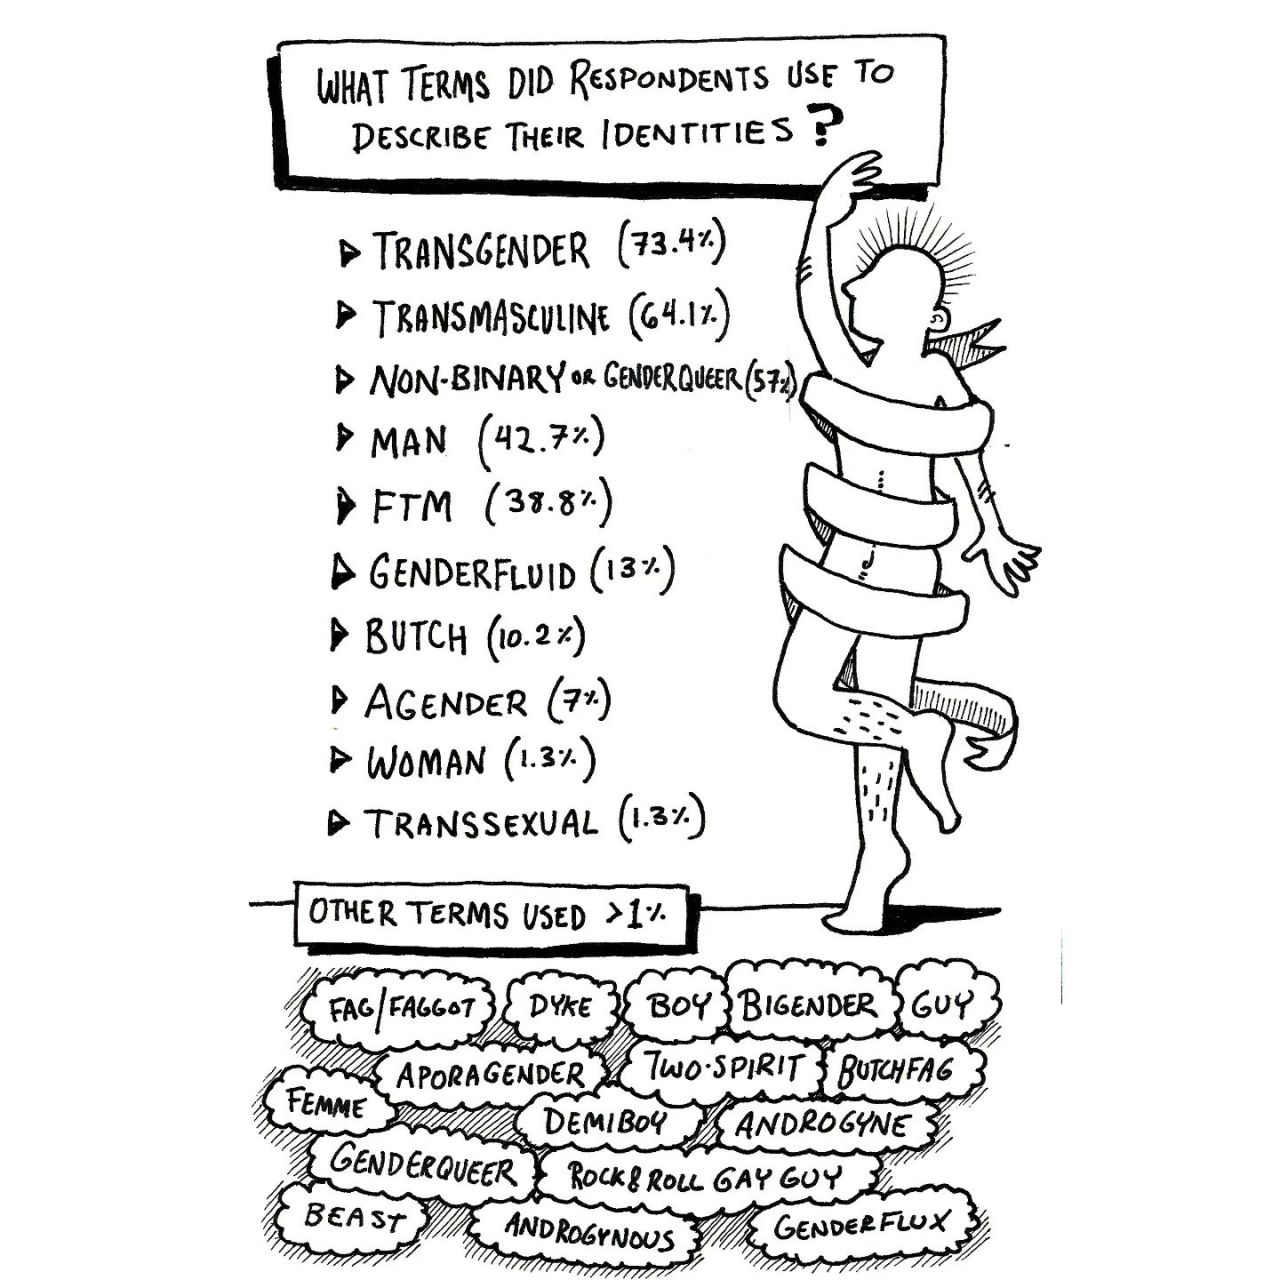 WHAT TERMS DID RESPONDENTS USE TO
DESCRIBE THEIR IDENTITIES?
TRANSGENDER (73.4%)
TRANSMASCULINE (64.1%)
NON-BINARY OR GENDERQUEER (57%)
MAN (42.7%)
FTM (38.8%)
GENDERFLUID (13%)
BUTCH (10.2%)
AGENDER (7%)
WOMAN (1.3%)
TRANSSEXUAL (1.3%)
OTHER TERMS USED >1%
FAG/FAGGOT DYKE BOY BIGENDER GUY
APORAGENDER TWO-SPIRIT BUTCHFAG
FEMME DEMIBOY ANDROGYNE
GENDERQUEER ROCK & ROLL GAY GUY
BEAST ANDROGYNOUS GENDERFLUX